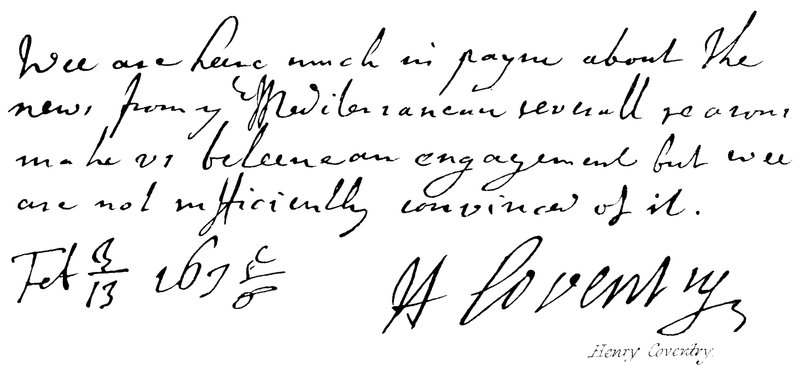 Wee are heere much in payne about the
news from yͤ Mediterranean severall reasons
make vs beleeue an engagement but wee
are not sufficiently convinced of it.
Feb 3/13 167 5/6 H Coventry
Henry Coventry.